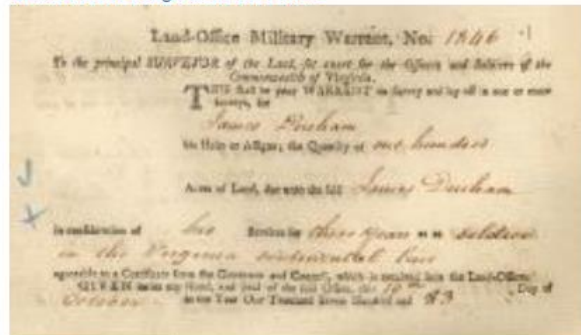 Land-Office Military Warrant, No. 1846
To the principal SURVEYOR of the Land, set apart for the Officers and Soldiers of the
Commonwealth of Virginia.
THIS shall be your WARRANT to Survey and lay off in one or more
Surveys, for
James Durham
his Heirs or Assigns, the Quantity of one hundred
Acres of Land, due unto the said James Durham
in consideration of his Services for three years as a soldier
in the Virginia continental line
agreeable to a Certificate from the Governor and Council, which is received into the Land-Office.
GIVEN under my Hand, and Seal of the said Office, this 10th Day of
October in the Year One Thousand Seven Hundred and 83